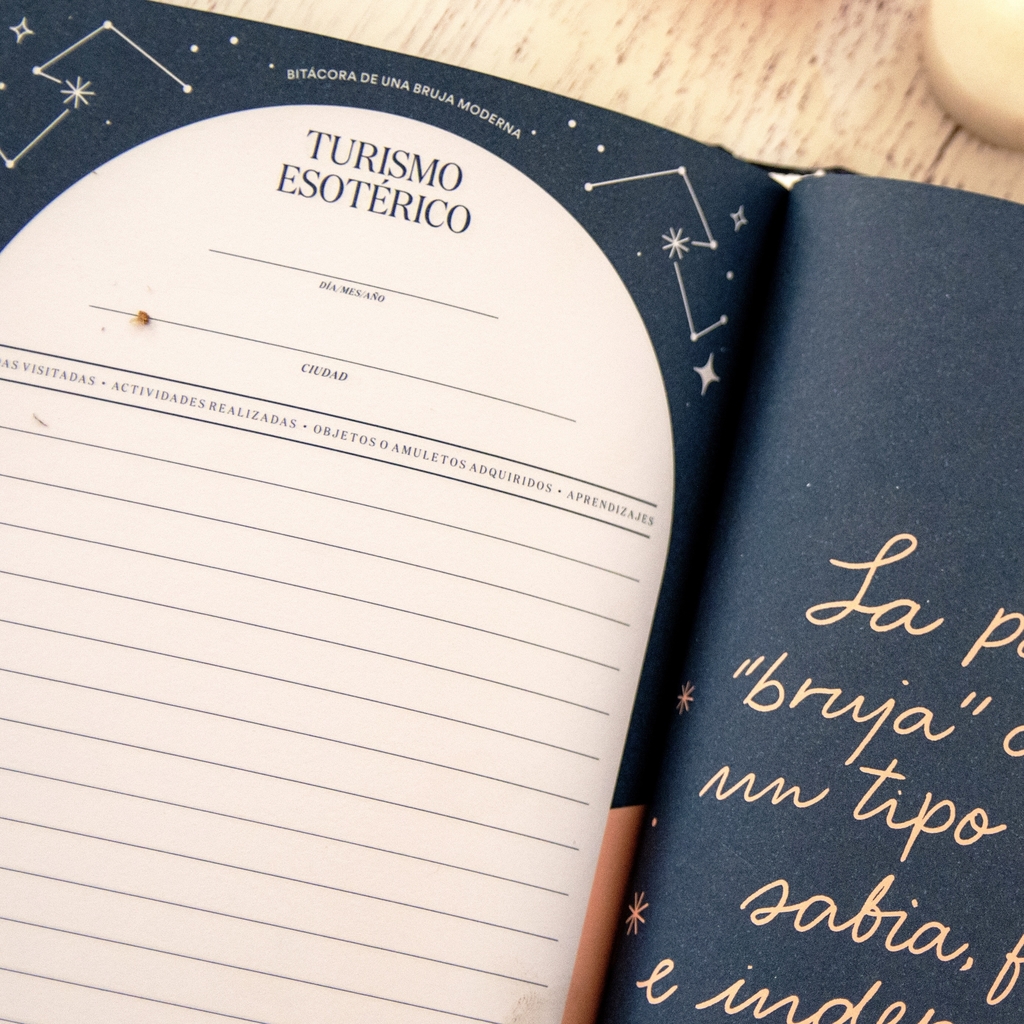 BITÁCORA DE UNA BRUJA MODERNA
TURISMO
ESOTÉRICO
DÍA/MES/AÑO
CIUDAD
VISITADAS • ACTIVIDADES REALIZADAS • OBJETOS O AMULETOS ADQUIRIDOS • APRENDIZAJES
La
"bruja"
un tipo
sabia,
e